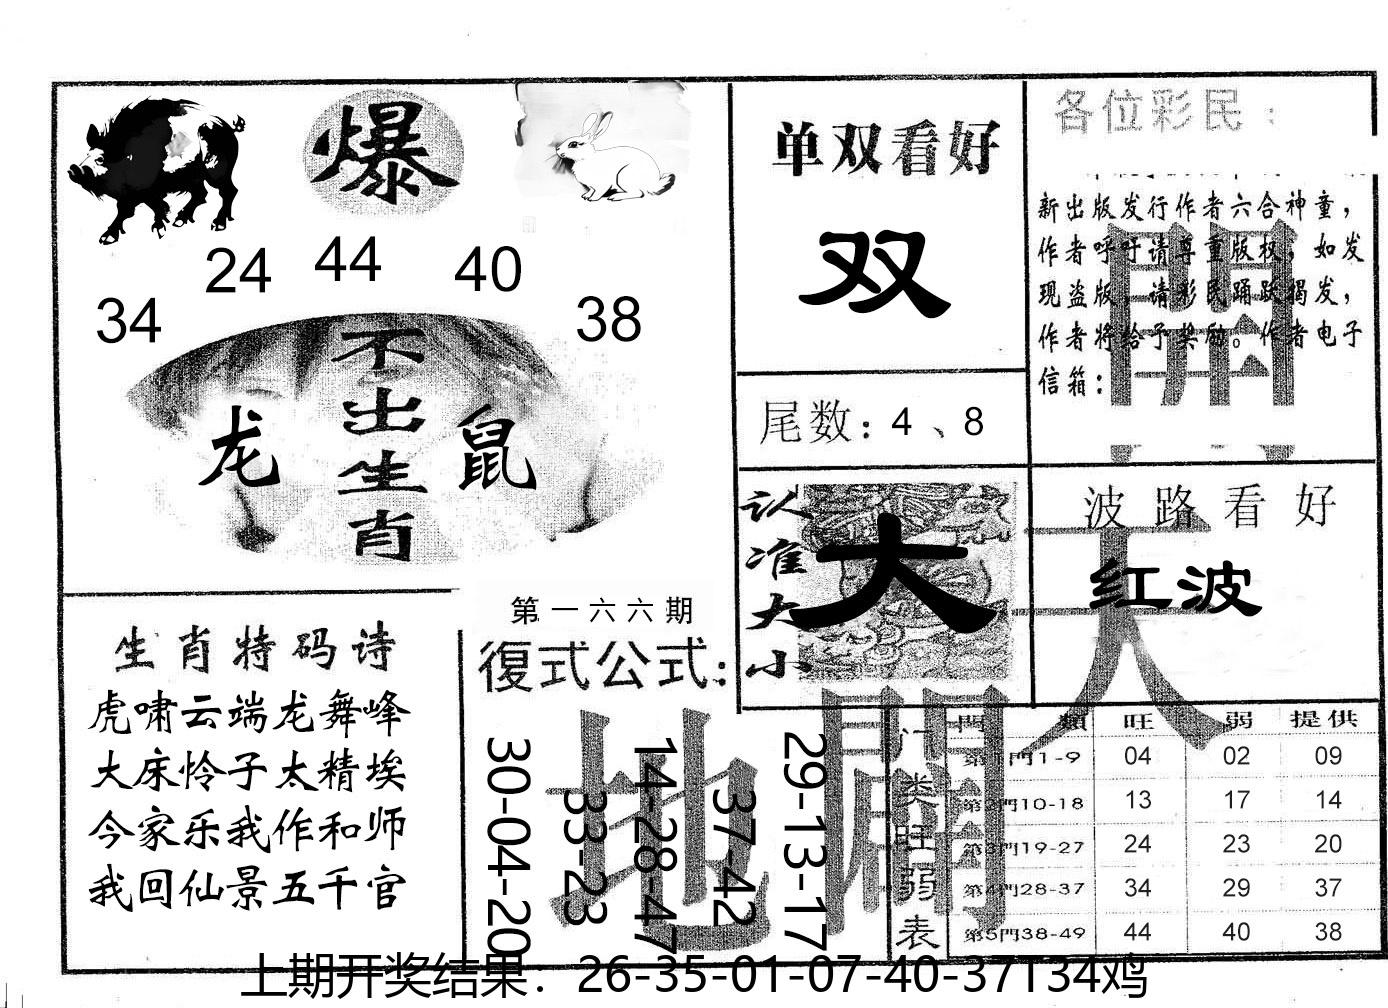 爆
24 44 40
34 38
不出生肖
龙 鼠
单双看好
双
尾数：4、8
各位彩民：
新出版发行作者六合神童，
作者呼吁请尊重版权，如发
现盗版，请彩民踊跃揭发，
作者将给予奖励。作者电子
信箱：
認准大小
大
波路看好
红波
天
開
地
開
生肖特码诗
虎啸云端龙舞峰
大床怜子太精埃
今家乐我作和师
我回仙景五千官
第一六六期
復式公式：
30-04-20
33-23
14-28-47
37-42
29-13-17
门类旺弱表
門類 旺 弱 提供
第1門1-9 04 02 09
第2門10-18 13 17 14
第3門19-27 24 23 20
第4門28-37 34 29 37
第5門38-49 44 40 38
上期开奖结果：26-35-01-07-40-37T34鸡